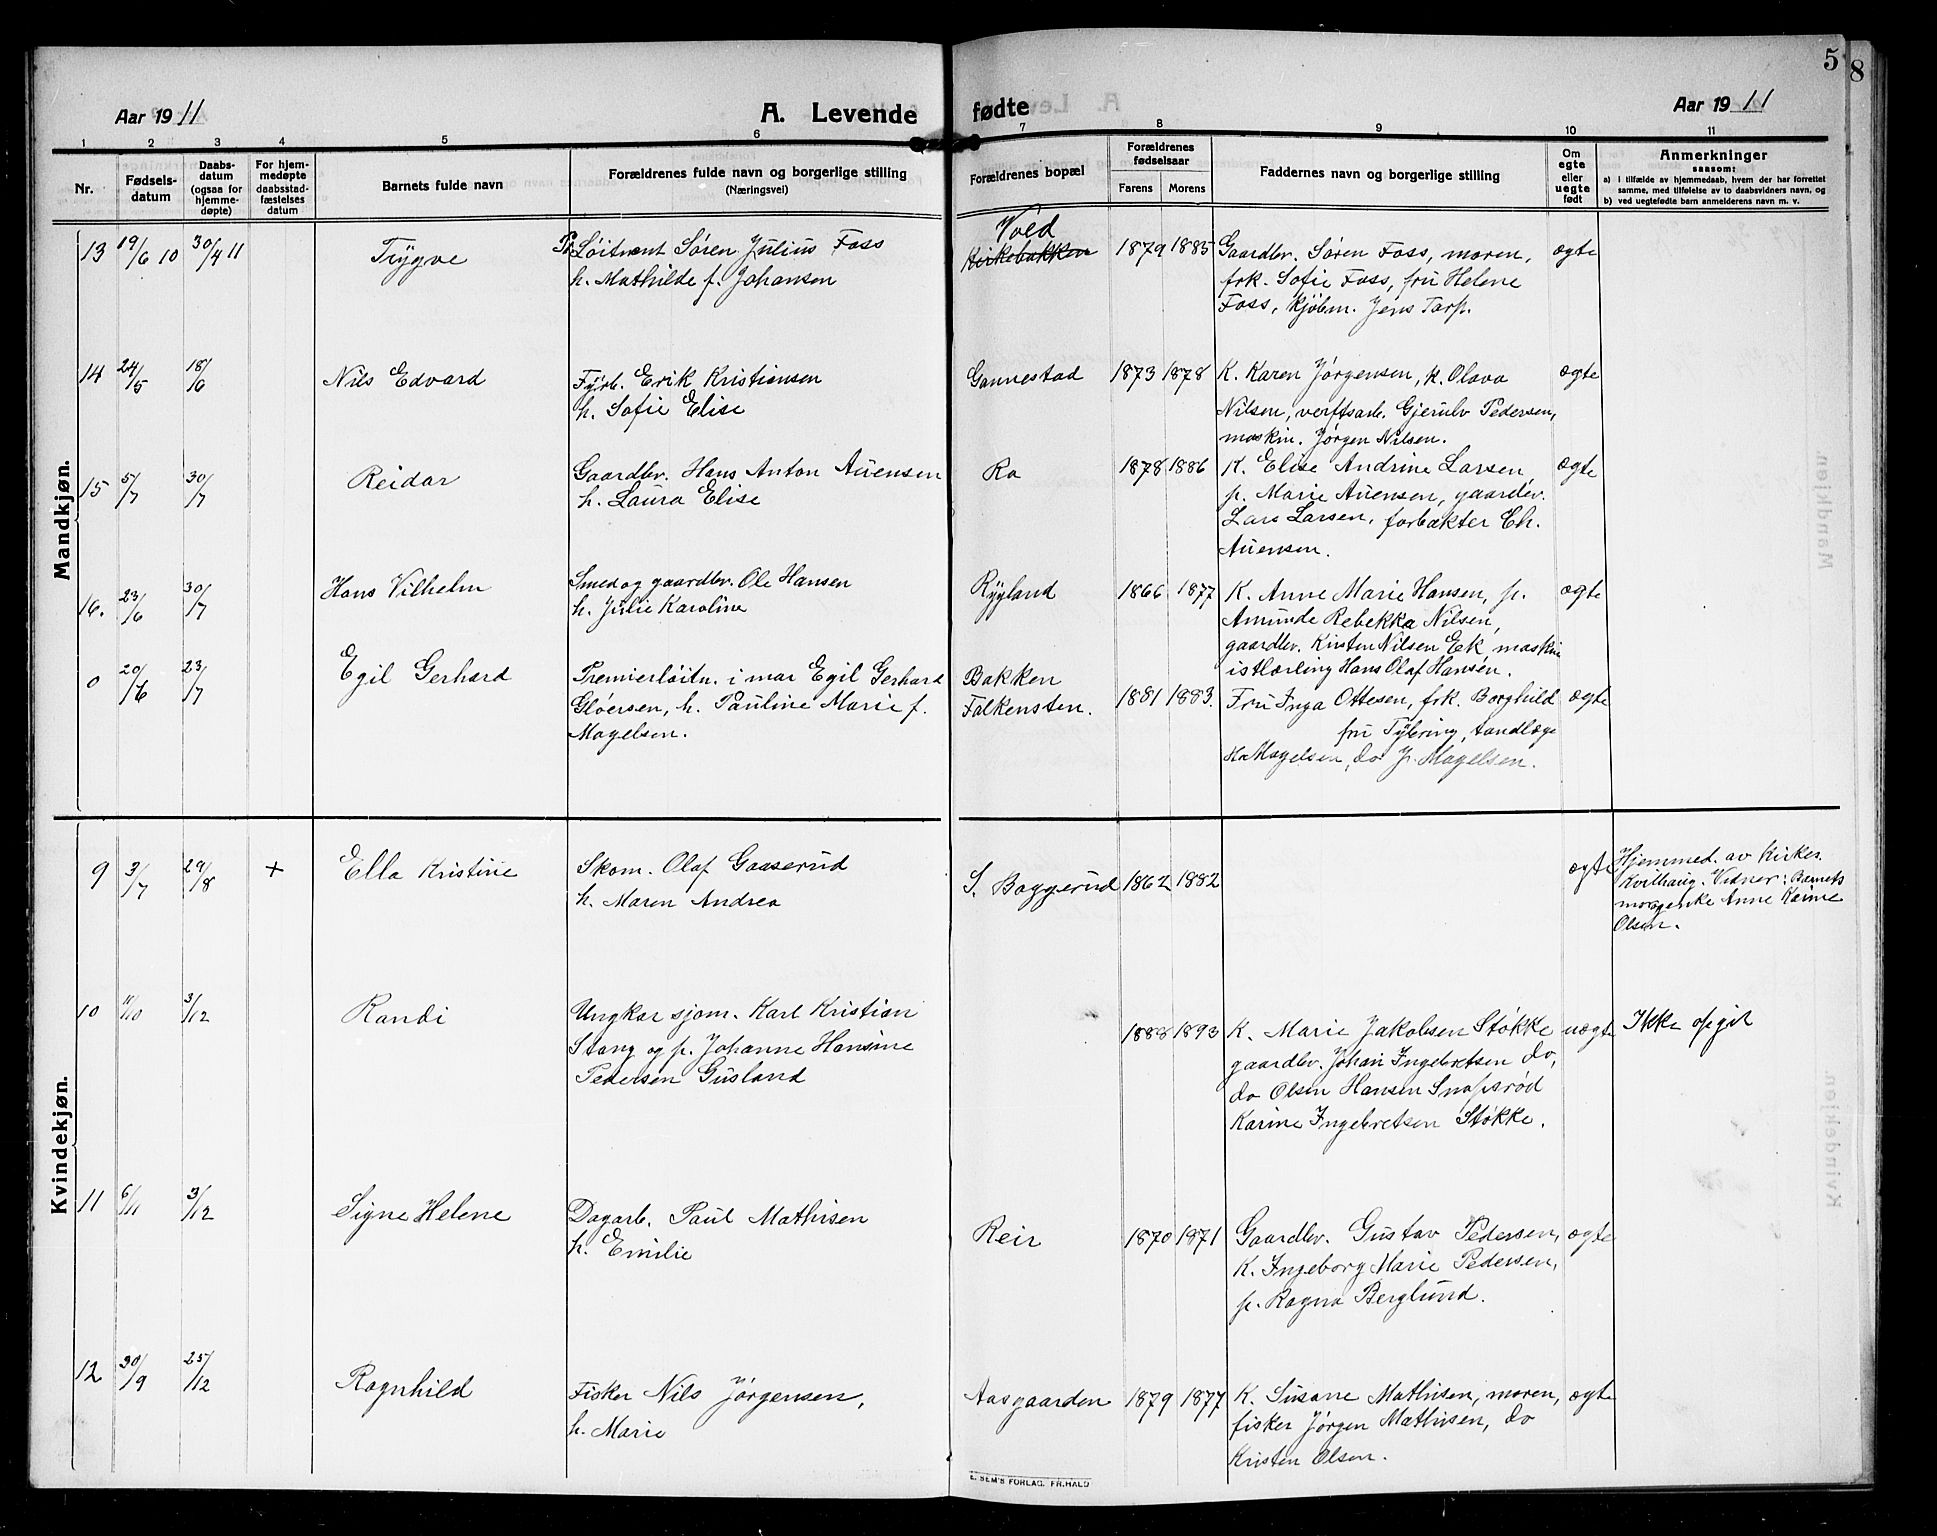 5
8
Aar 1911
A. Levende fødte
Aar 1911
1 2 3 4 5 6 7 8 9 10 11
Nr.
Fødsels-
datum
Daabs-
datum
(ogsaa for
hjemme-
døpte)
For hjem-
medøpte
daabsstad-
fæstelses
datum
Barnets fulde navn
Forældrenes fulde navn og borgerlige stilling
(Næringsvei)
Forældrenes bopæl
Forældrenes
fødselsaar
Farens Morens
Faddernes navn og borgerlige stilling
Om
egte
eller
uegte
født
Anmerkninger
saasom:
a) i tilfælde av hjemmedaab, hvem der har forrettet
samme, med tilføielse av to daabsvidners navn, og
b) ved uegtefødte barn anmelderens navn m. v.
Mandkjøn.
13 19/6 10 30/4 11 Trygve
Pr. Løitnant Søren Julius Foss
h. Mathilde f. Johansen
Vold
Kirkebakken
1879 1885
Gaardbr. Søren Foss, moren,
frk. Sofie Foss, fru Helene
Foss, kjøbm. Jens Tarp.
egte
14 24/5 18/6 Nils Edvard
Fyrb. Erik Kristiansen
h. Sofie Elise
Gannestad
1873 1878
K. Karen Jørgensen, K. Olava
Nilsen, verftsarb. Gjerulv Pedersen,
maskin. Jørgen Nilsen.
egte
15 5/7 30/7 Reidar
Gaardbr. Hans Anton Auensen
h. Laura Elise
Ra
1878 1886
K. Elise Andrine Larsen,
p. Marie Auensen, gaardbr.
Lars Larsen, forpakter Ch.
Auensen.
egte
16. 23/6 30/7 Hans Vilhelm
Smed og gaardbr. Ole Hansen
h. Julie Karoline
Rygland
1866 1877
K. Anne Marie Hansen, p.
Amunde Rebekka Nilsen,
gaardbr. Kirsten Nilsen Ek maskin
istlærling Hans Olaf Hansen.
egte
0 20/6 23/7 Egil Gerhard
Premierløitn. i mar Egil Gerhard
Gløersen, h. Pauline Marie f.
Magelsen.
Bakken
Falkensten.
1881 1883.
Fru Inga Ottesen, frk. Borghild
fru Tybring, tandlæge
H. Magelsen, do J. Magelsen.
egte
Kvindekjøn.
9 3/7 29/8 + Ella Kristine
Skom. Olaf Gaaserud
h. Maren Andrea
S. Baggerud
1862 1882
egte
Hjemmed. av Kirkes.
Kvilhaug. Vidner: Barnets
mor og enke Anne Karine
Olsen.
10 11/10 3/12 Randi
Ungkar sjøm. Karl Kristian
Stang og p. Johanne Hansine
Pedersen Gusland
1888 1893
K. Marie Jakobsen Støkke
gaardbr. Johan Ingebretsen do,
do Olsen Hansen Snapsrød
Karine Ingebretsen Støkke.
uegte
Ikke opgit
11 6/11 3/12 Signe Helene
Dagarb. Paul Mathisen
h. Emilie
Reir
1870 1871
Gaardbr. Gustav Pedersen,
K. Ingeborg Marie Pedersen,
p. Ragna Berglund.
egte
12 30/9 25/12 Ragnhild
Fisker Nils Jørgensen,
h. Marie
Aasgaarden
1879 1877
K. Susane Mathisen, moren,
fisker Jørgen Mathisen, do
Kristen Olsen.
egte
E. SEM'S FORLAG. FR.HALD